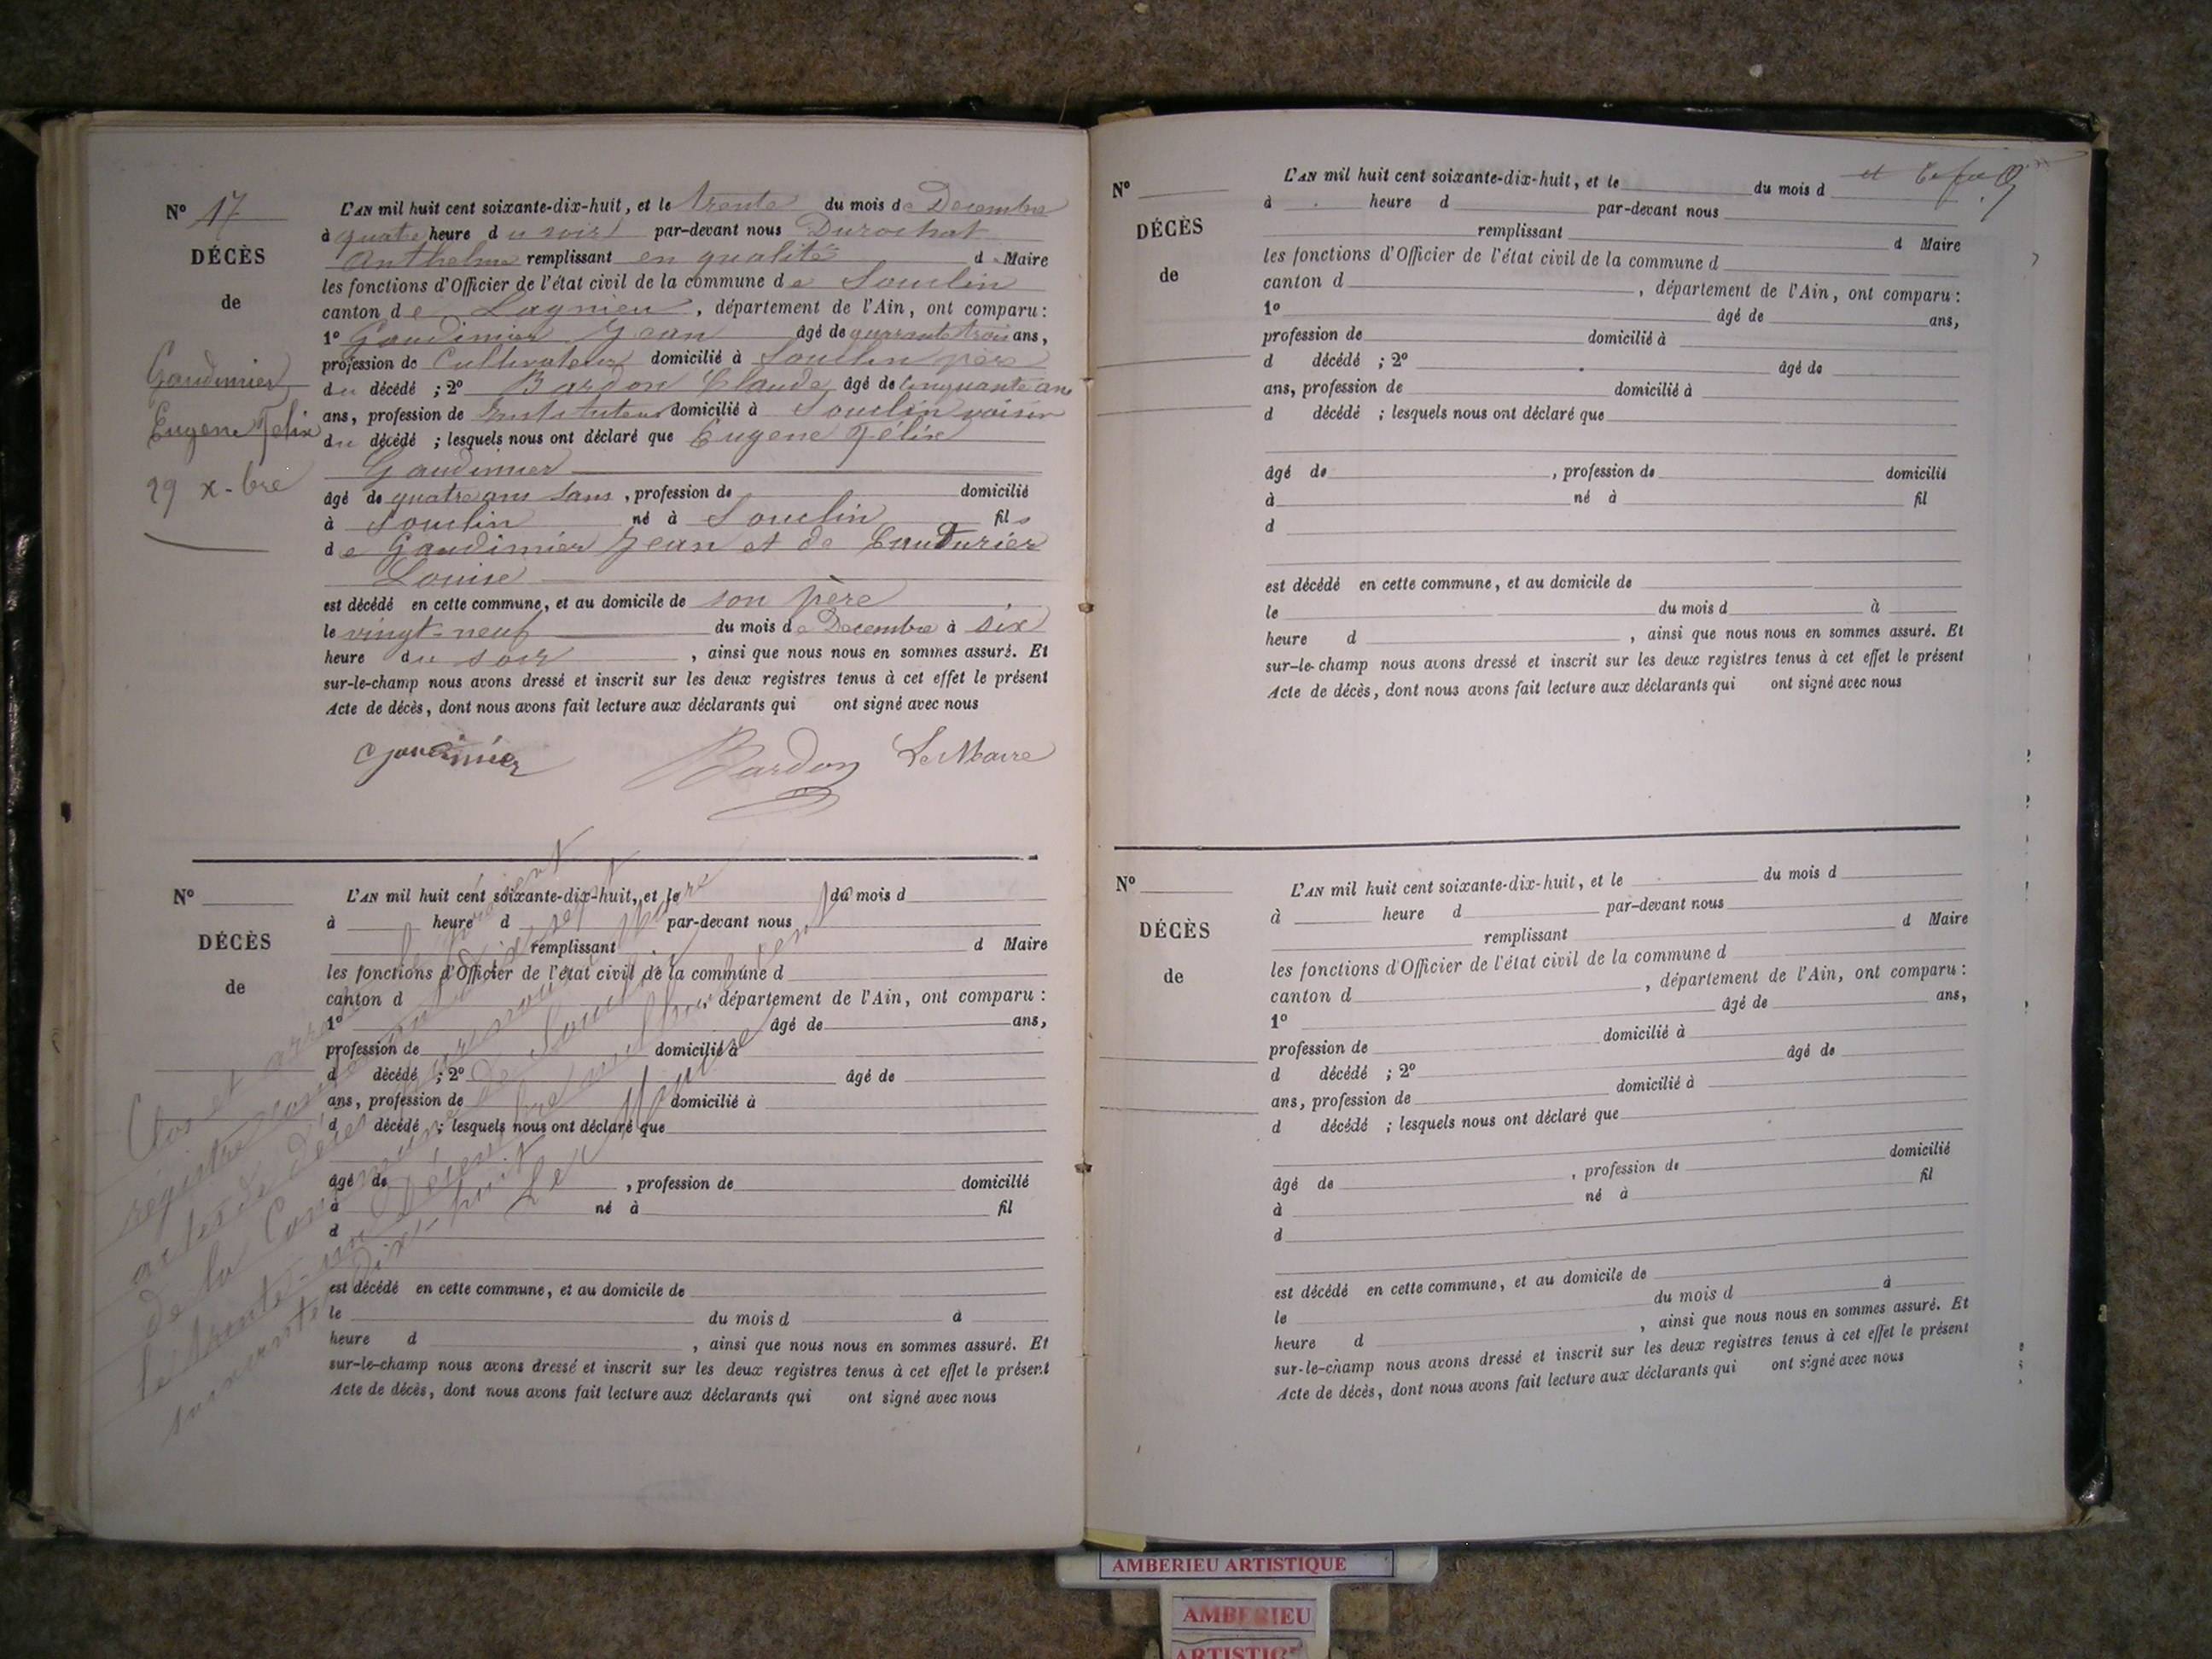 N° 17
DÉCÈS
de
Gaudinier
Eugene Felix
29 x-bre
L'AN mil huit cent soixante-dix-huit, et le trente du mois de Decembre
à quatre heure du soir par-devant nous Durochat
Anthelme remplissant en qualité d Maire
les fonctions d'Officier de l'état civil de la commune de Souclin
canton de Lagnieu, département de l'Ain, ont comparu :
1° Gaudinier Jean âgé de quarante trois ans,
profession de Cultivateur domicilié à Souclin père
du décédé ; 2° Bardon Claude âgé de Cinquante ans
ans, profession de Instituteur domicilié à Souclin voisin
du décédé ; lesquels nous ont déclaré que Eugene Félix
Gaudinier
âgé de quatre ans sans, profession de domicilié
à Souclin né à Souclin fils
de Gaudinier Jean et de Couturier
Louise
est décédé en cette commune, et au domicile de son père
le vingt-neuf du mois de Decembre à six
heure du soir, ainsi que nous nous en sommes assuré. Et
sur-le-champ nous avons dressé et inscrit sur les deux registres tenus à cet effet le présent
Acte de décès, dont nous avons fait lecture aux déclarants qui ont signé avec nous
Gaudinier Bardon Le Maire
N°
DÉCÈS
de
L'AN mil huit cent soixante-dix-huit, et le du mois d
à heure d par-devant nous
remplissant d Maire
les fonctions d'Officier de l'état civil de la commune d
canton d , département de l'Ain, ont comparu :
1° âgé de ans,
profession de domicilié à
d décédé ; 2° âgé de
ans, profession de domicilié à
d décédé ; lesquels nous ont déclaré que
âgé de , profession de domicilié
à né à fil
d
est décédé en cette commune, et au domicile de
le du mois d à
heure d , ainsi que nous nous en sommes assuré. Et
sur-le-champ nous avons dressé et inscrit sur les deux registres tenus à cet effet le présent
Acte de décès, dont nous avons fait lecture aux déclarants qui ont signé avec nous
Clos et arrêté le présent
registre
actes de décès
de la Commune de Souclin
le trente-un Décembre mil huit cent
soixante dix-huit
Le Maire
N°
DÉCÈS
de
L'AN mil huit cent soixante-dix-huit, et le du mois d
à heure d par-devant nous
remplissant d Maire
les fonctions d'Officier de l'état civil de la commune d
canton d , département de l'Ain, ont comparu :
1° âgé de ans,
profession de domicilié à
d décédé ; 2° âgé de
ans, profession de domicilié à
d décédé ; lesquels nous ont déclaré que
âgé de , profession de domicilié
à né à fil
d
est décédé en cette commune, et au domicile de
le du mois d à
heure d , ainsi que nous nous en sommes assuré. Et
sur-le-champ nous avons dressé et inscrit sur les deux registres tenus à cet effet le présent
Acte de décès, dont nous avons fait lecture aux déclarants qui ont signé avec nous
N°
DÉCÈS
de
L'AN mil huit cent soixante-dix-huit, et le du mois d
à heure d par-devant nous
remplissant d Maire
les fonctions d'Officier de l'état civil de la commune d
canton d , département de l'Ain, ont comparu :
1° âgé de ans,
profession de domicilié à
d décédé ; 2° âgé de
ans, profession de domicilié à
d décédé ; lesquels nous ont déclaré que
âgé de , profession de domicilié
à né à fil
d
est décédé en cette commune, et au domicile de
le du mois d à
heure d , ainsi que nous nous en sommes assuré. Et
sur-le-champ nous avons dressé et inscrit sur les deux registres tenus à cet effet le présent
Acte de décès, dont nous avons fait lecture aux déclarants qui ont signé avec nous
AMBERIEU ARTISTIQUE
AMBERIEU
ARTISTIQ